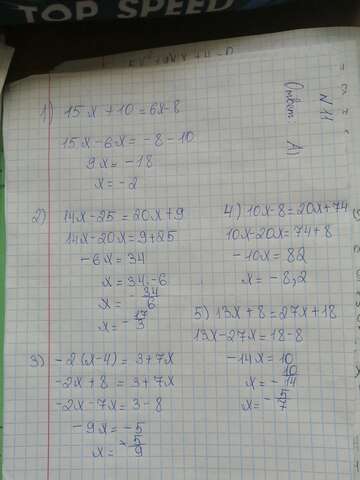 TOP SPEED
N 11
Ответ: А)
1) 15x+10=6x-8
15x-6x=-8-10
9x=-18
x=-2
2) 14x-25=20x+9
14x-20x=9+25
-6x=34
x=34:-6
x=-34/6
x=-17/3
3) -2(x-4)=3+7x
-2x+8=3+7x
-2x-7x=3-8
-9x=-5
x=5/9
4) 10x-8=20x+74
10x-20x=74+8
-10x=82
x=-8,2
5) 13x+8=27x+18
13x-27x=18-8
-14x=10
x=-10/14
x=-5/7